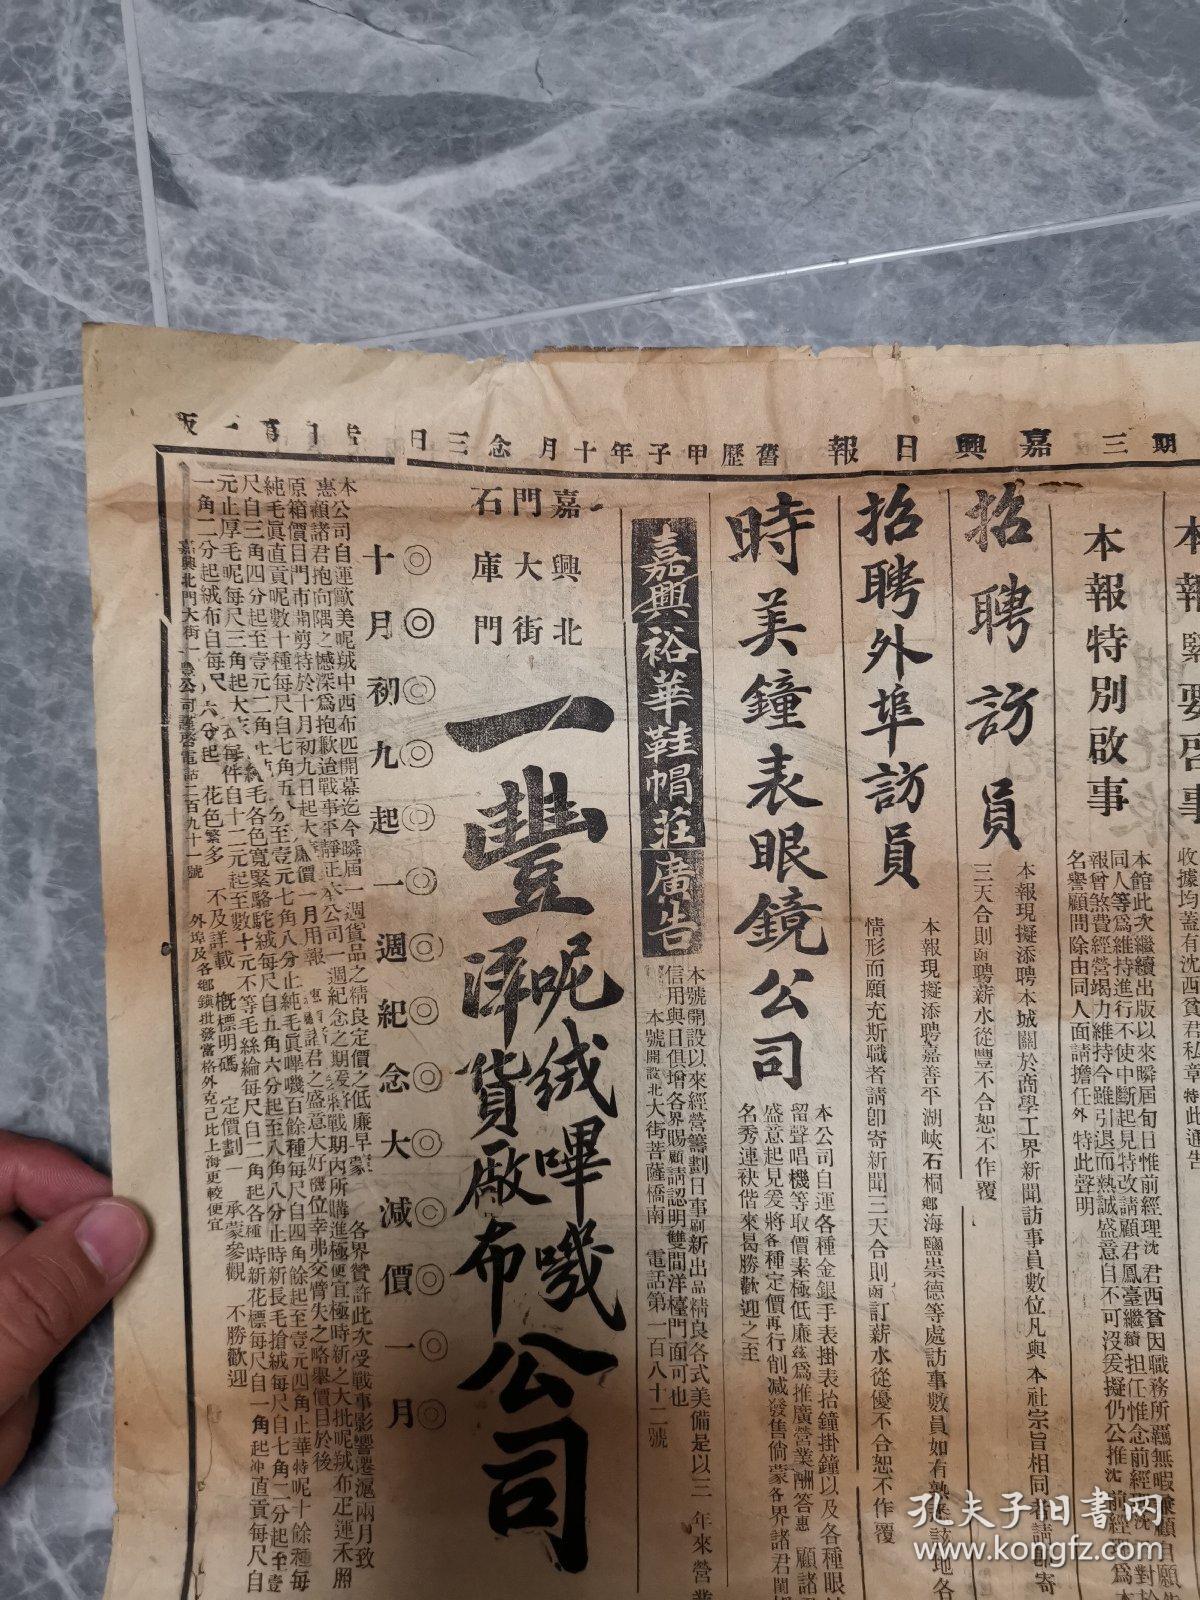 期三 嘉興日報 舊歷甲子年十月念三日
本報特別啟事
本館此次繼續出版以來瞬屆旬日惟前經理沈君西賁因職務所羈無暇兼顧
同人等爲維持進行不使中斷起見特改請顧君鳳臺繼續担任惟念前經理沈
報曾煞費經營竭力維持今雖引退而熱誠盛意自不可沒爰擬仍公推沈前經理爲本
名譽顧問除由同人面請擔任外特此聲明
收據均蓋有沈西賁君私章特此通告
招聘訪員
本報現擬添聘本城關於商學工界新聞訪事員數位凡與本社宗旨相同者請即寄
三天合則函聘薪水從豐不合恕不作覆
招聘外埠訪員
本報現擬添聘嘉善平湖峽石桐鄉海鹽崇德等處訪事數員如有熟悉該地各
情形而願充斯職者請卽寄新聞三天合則函訂薪水從優不合恕不作覆
時美鐘表眼鏡公司
本公司自運各種金銀手表掛表抬鐘掛鐘以及各種眼
留聲唱機等取價素極低廉茲爲推廣營業酬答惠顧諸
盛意起見爰將各種定價再行削减發售倘蒙各界諸君閨
名秀連袂偕來曷勝歡迎之至
嘉興裕華鞋帽莊廣告
本號開設以來經營籌劃日事刷新出品精良各式美備是以三年來營業
信用與日俱增各界賜顧請認明雙間洋檯門面可也
本號開設北大街菩薩橋南 電話第一百八十二號
嘉興北
門大街
石庫門
一豐呢絨嗶嘰公司
洋貨廠布
◎◎◎◎◎◎◎◎◎◎◎◎◎
十月初九起一週紀念大減價一月
本公司自運歐美呢絨中西布匹開幕迄今瞬屆一週貨品之精良定價之低廉早蒙各界贊許此次受戰事影響遷滬兩月致
惠顧諸君抱向隅之憾深爲抱歉迨戰事平靜正本公司一週紀念之期爰將戰期內所購進極便宜極時新之大批呢絨布疋運禾照
原箱價日門市開剪特於十月初九日起大廉價一月用報惠顧諸君之盛意大好機位幸弗交臂失之略舉價目於後
純毛眞直貢呢數十種每尺自七角五分至壹元七角八分止純毛眞嗶嘰百餘種每尺自四角餘起至壹元四角止華特呢十餘種每
尺自三角四分起至壹元二角止純毛各色寬緊駱駝絨每尺自五角六分起至八角八分止時新長毛搶絨每尺自七角二分起至壹
元止厚毛呢每尺三角起大衣每件自十二元起至數十元不等毛絲綸每尺自二角起各種時新花標每尺自一角起冲直貢每尺自
一角二分起絨布自每尺六分起 花色繁多 不及詳載 概標明碼 定價劃一 承蒙參觀 不勝歡迎
嘉興北門大街一豐公司謹啓電話二百九十一號 外埠及各鄉鎮批發當格外克己比上海更較便宜
孔夫子旧書网
www.kongfz.com